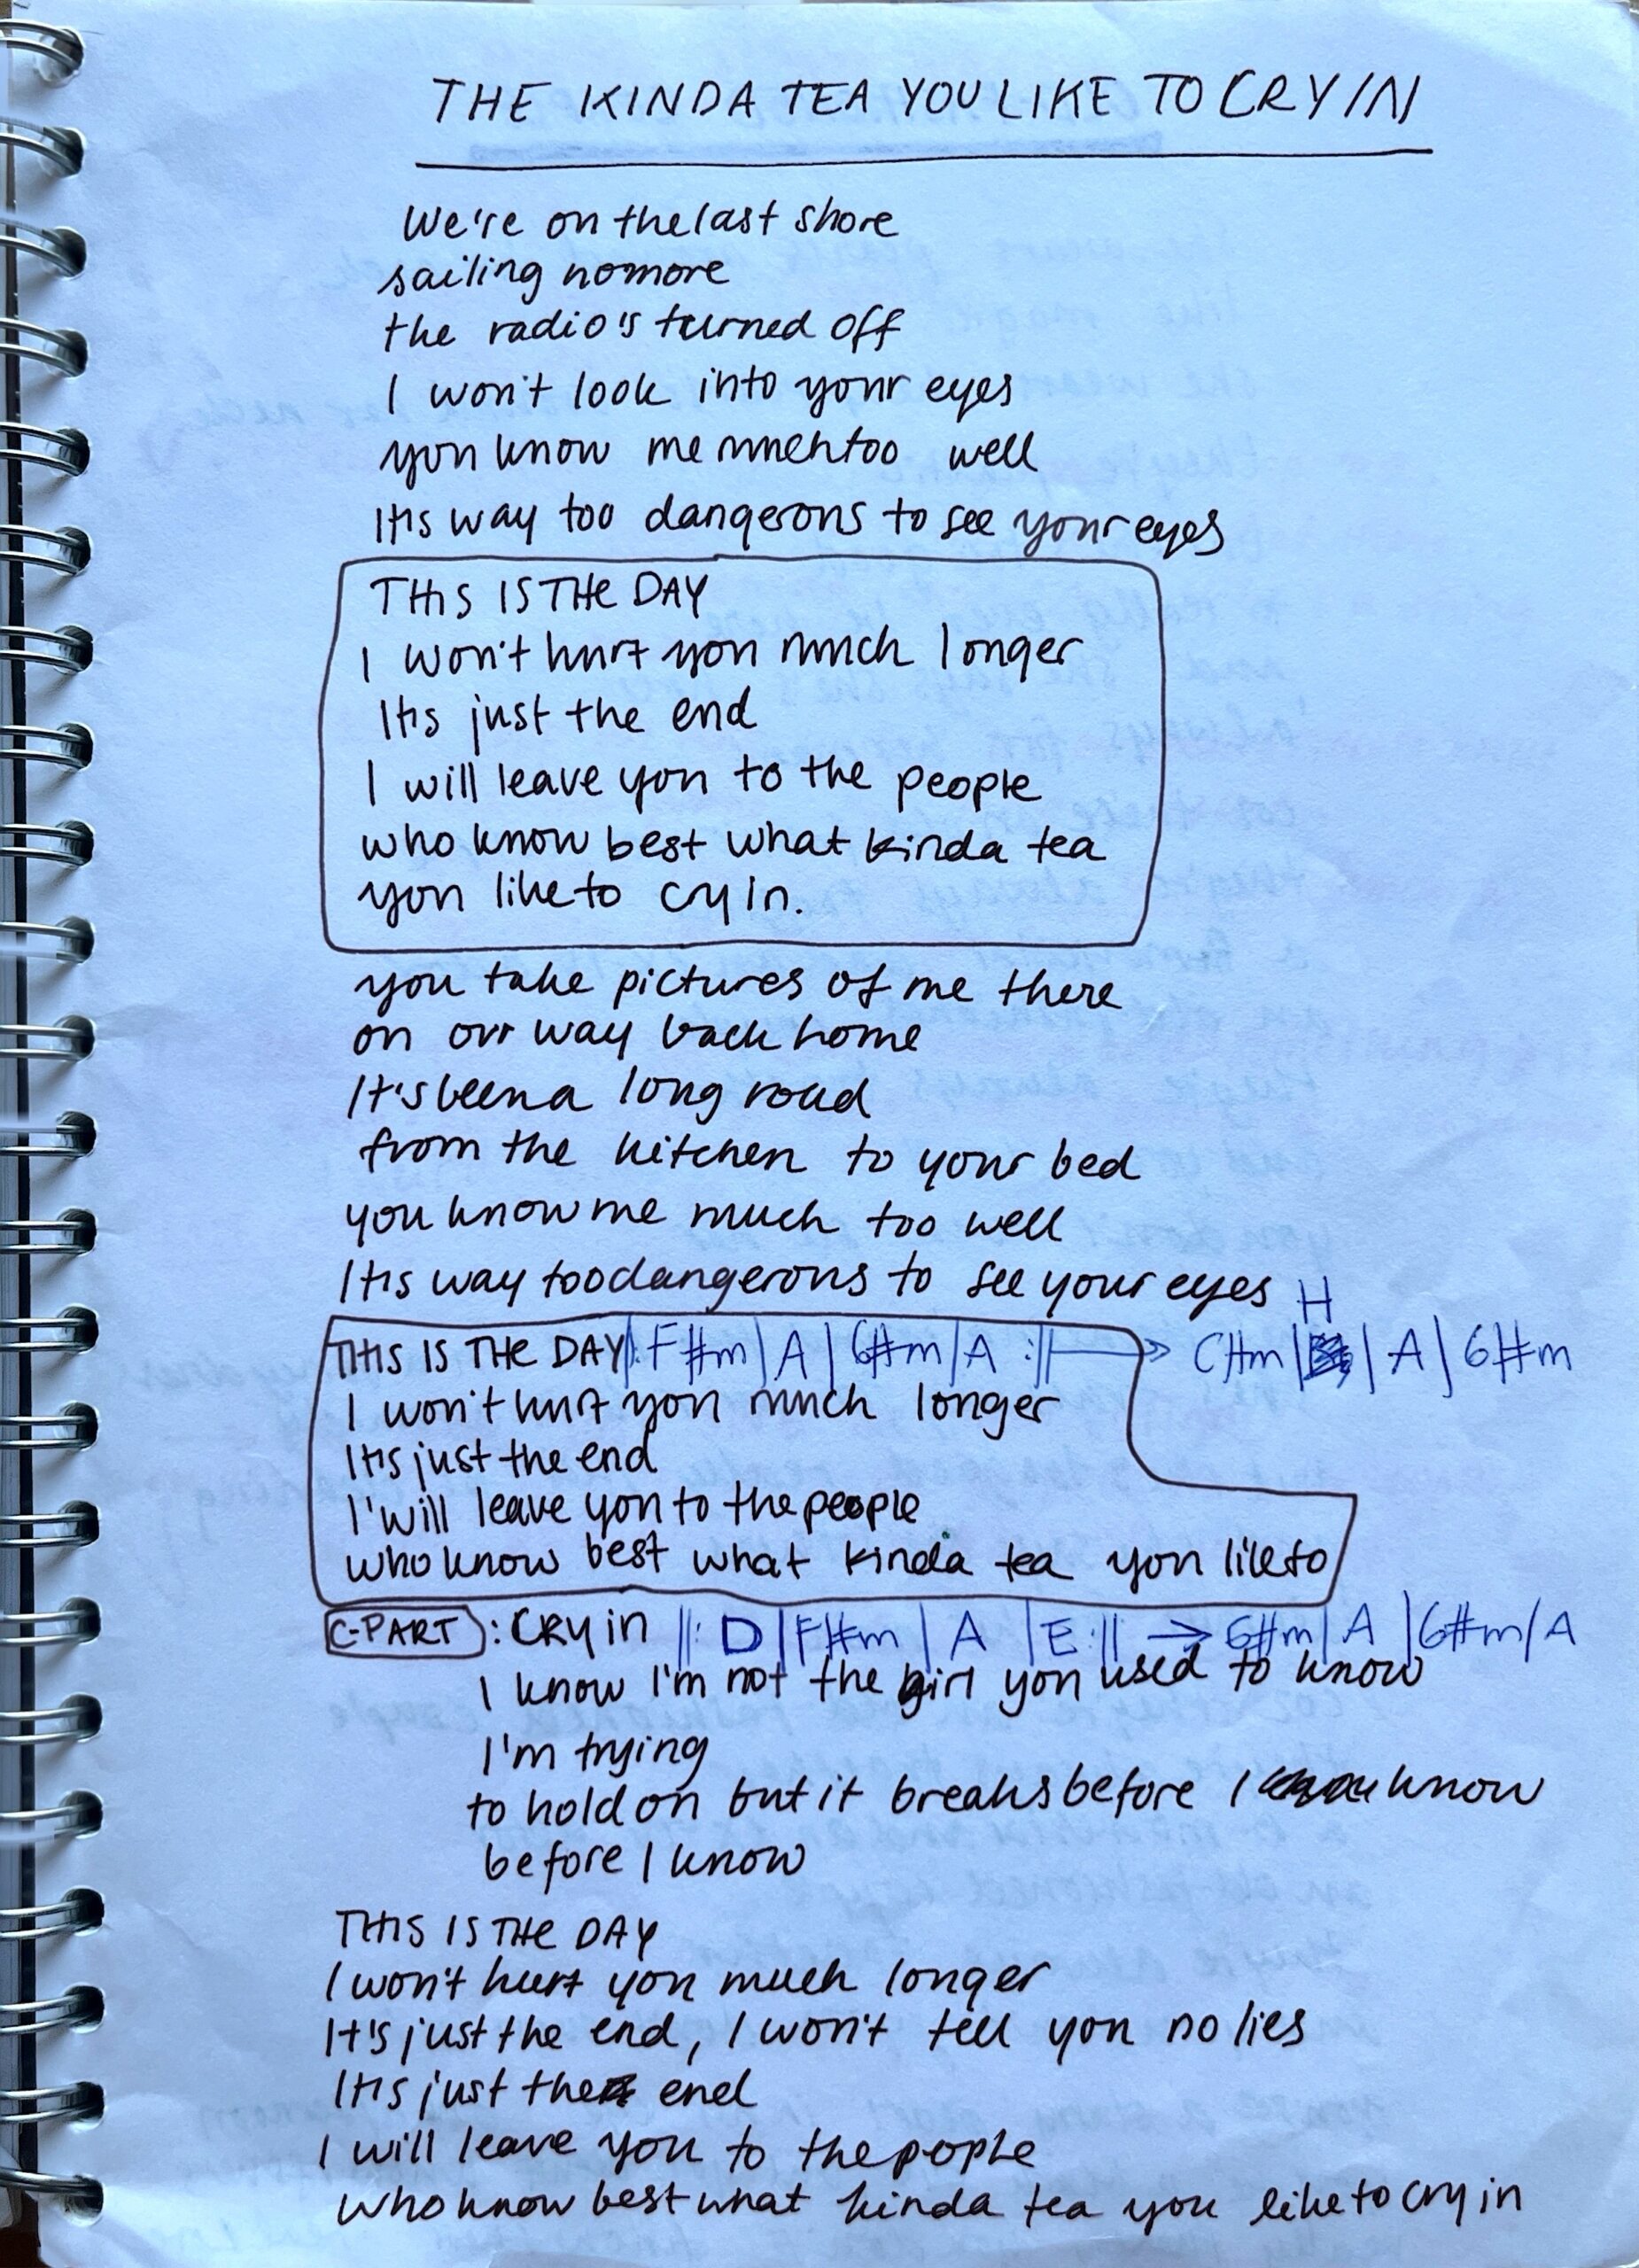 THE KINDA TEA YOU LIKE TO CRY IN
We're on the last shore
sailing nomore
the radio's turned off
I won't look into your eyes
you know me much too well
It's way too dangerous to see your eyes
THIS IS THE DAY
I won't hurt you much longer
It's just the end
I will leave you to the people
who know best what kinda tea
you like to cry in.
you take pictures of me there
on our way back home
It's been a long road
from the kitchen to your bed
you know me much too well
It's way too dangerous to see your eyes
H
THIS IS THE DAY |: F#m | A | G#m | A :|| → C#m | | A | G#m
I won't hurt you much longer
It's just the end
I'will leave you to the people
who know best what kinda tea you like to
C-PART : CRY in ||: D | F#m | A | E :|| → G#m | A | G#m | A
I know I'm not the girl you used to know
I'm trying
to hold on but it breaks before I know
before I know
THIS IS THE DAY
I won't hurt you much longer
It's just the end, I won't tell you no lies
It's just the end
I will leave you to the people
who know best what kinda tea you like to cry in